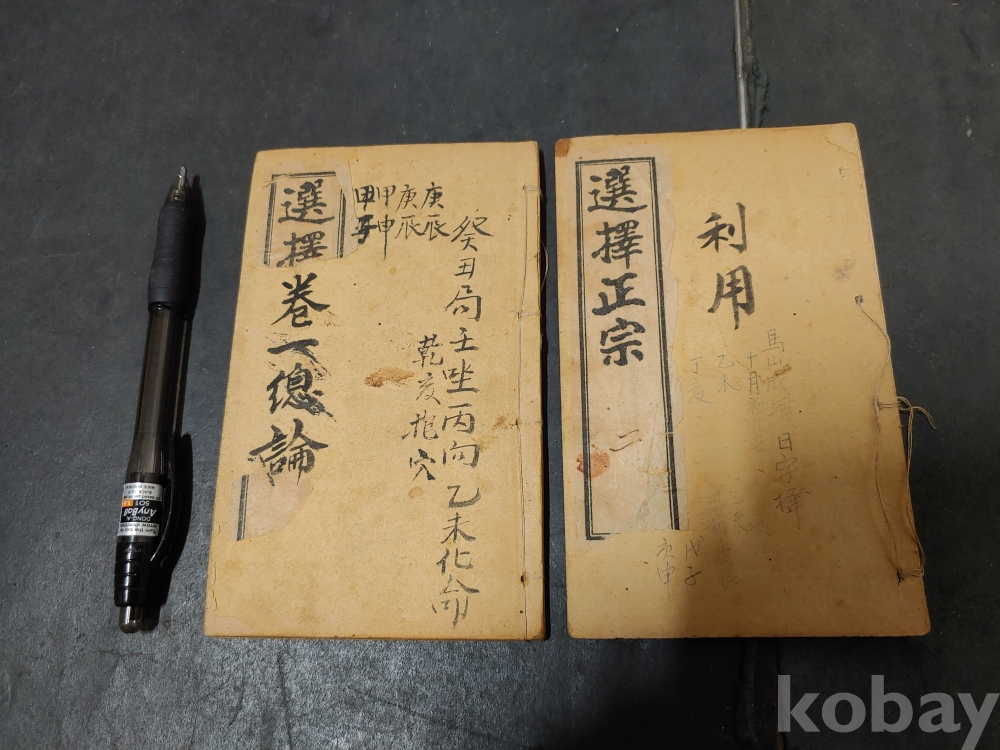 選擇
卷一總論
庚辰
庚辰
甲申
甲子
癸丑局壬坐丙向乙未化命
乾亥抱穴
選擇正宗
二
利用
日字擇
十月
乙未
丁亥
戊子
庚申
DONG-A
AnyBall
501
kobay